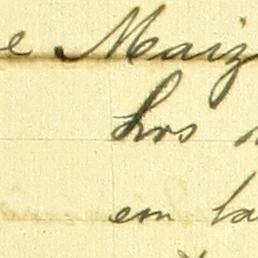 e Maiz
hrs
em la